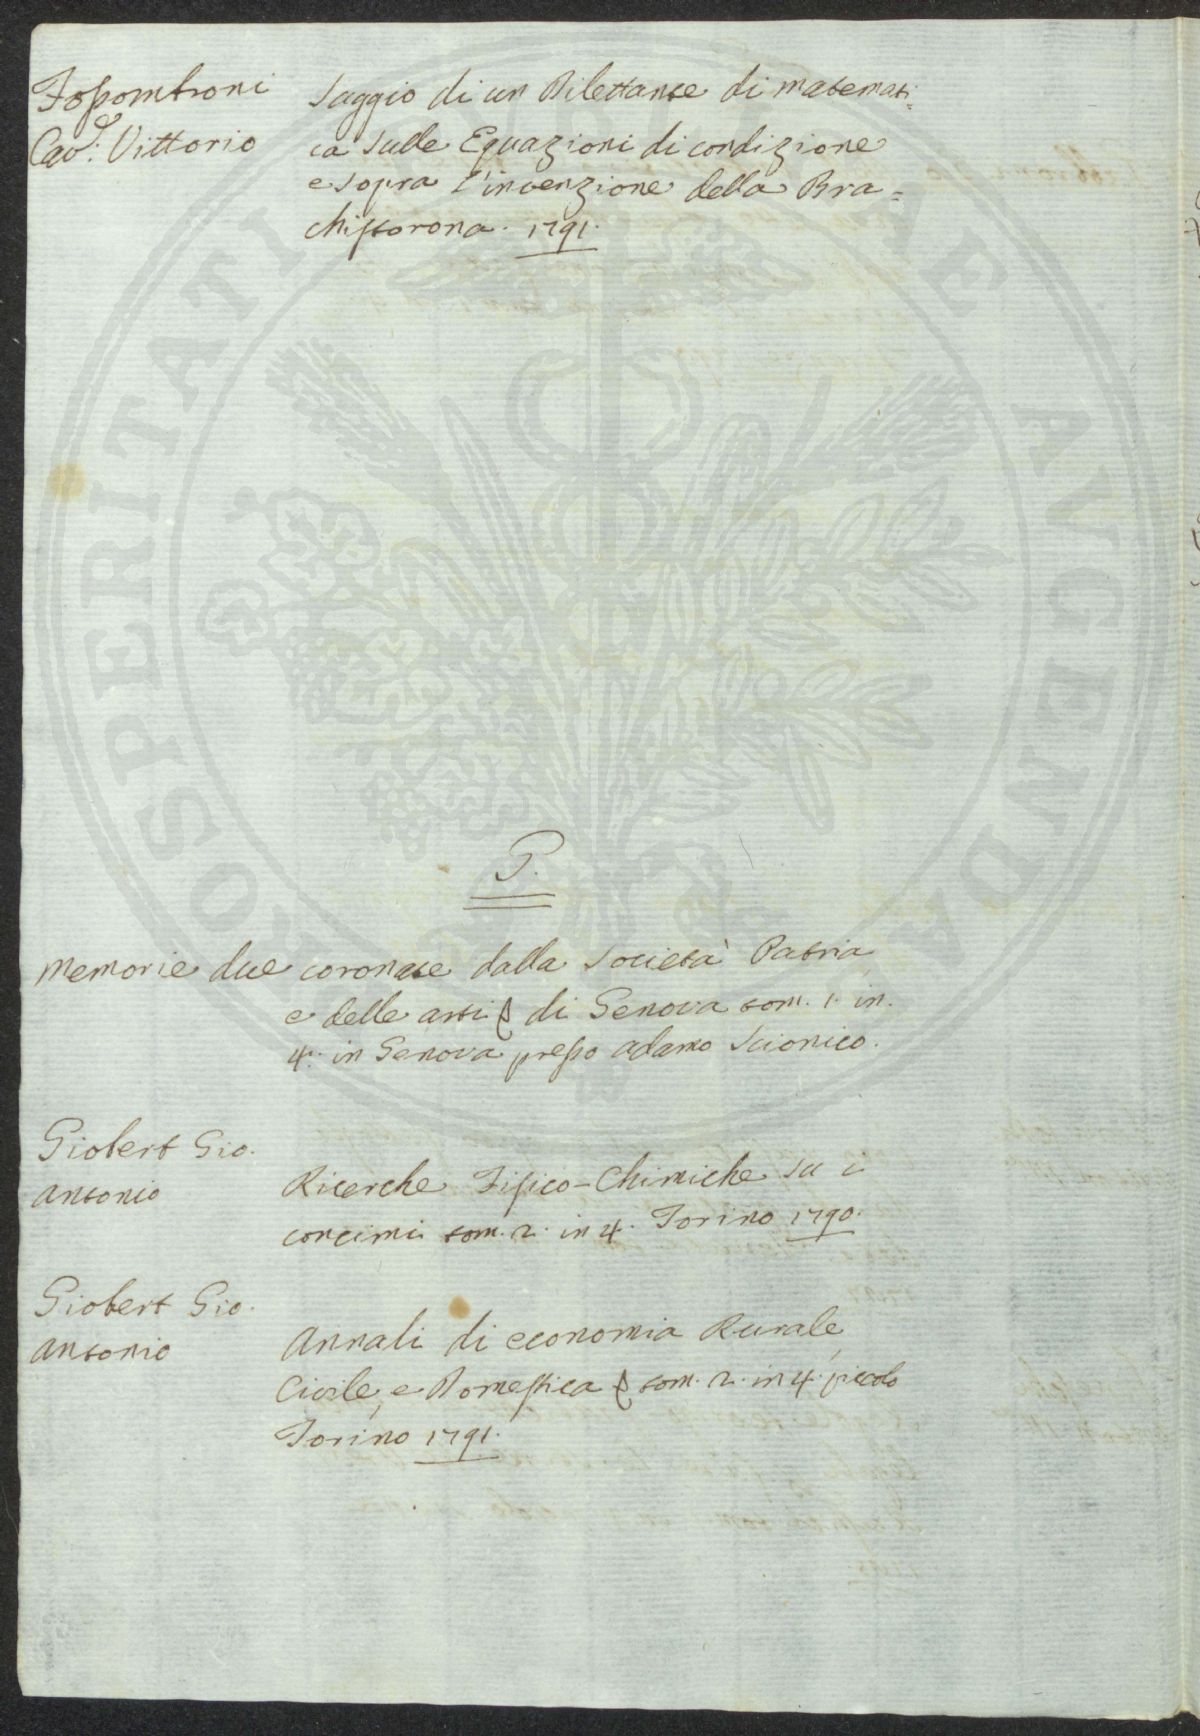 Fossombroni Saggio di un Dilettante di matemati=
Cav.r Vittorio ca sulle Equazioni di condizione
e sopra l'invenzione della Bra=
chistorona. 1791.
G.
Memorie due coronate dalla Società Patria
e delle arti & di Genova tom. 1. in.
4. in Genova presso adamo Scionico.
Giobert Gio.
antonio Ricerche Fisico-Chimiche su i
concimi tom. 2. in 4. Torino 1790.
Giobert Gio.
antonio Annali di economia Rurale,
Civile, e Domestica & tom. 2. in 4. piccolo
Torino 1791.
PROSPERITATI PVBLICAE AVGENDAE